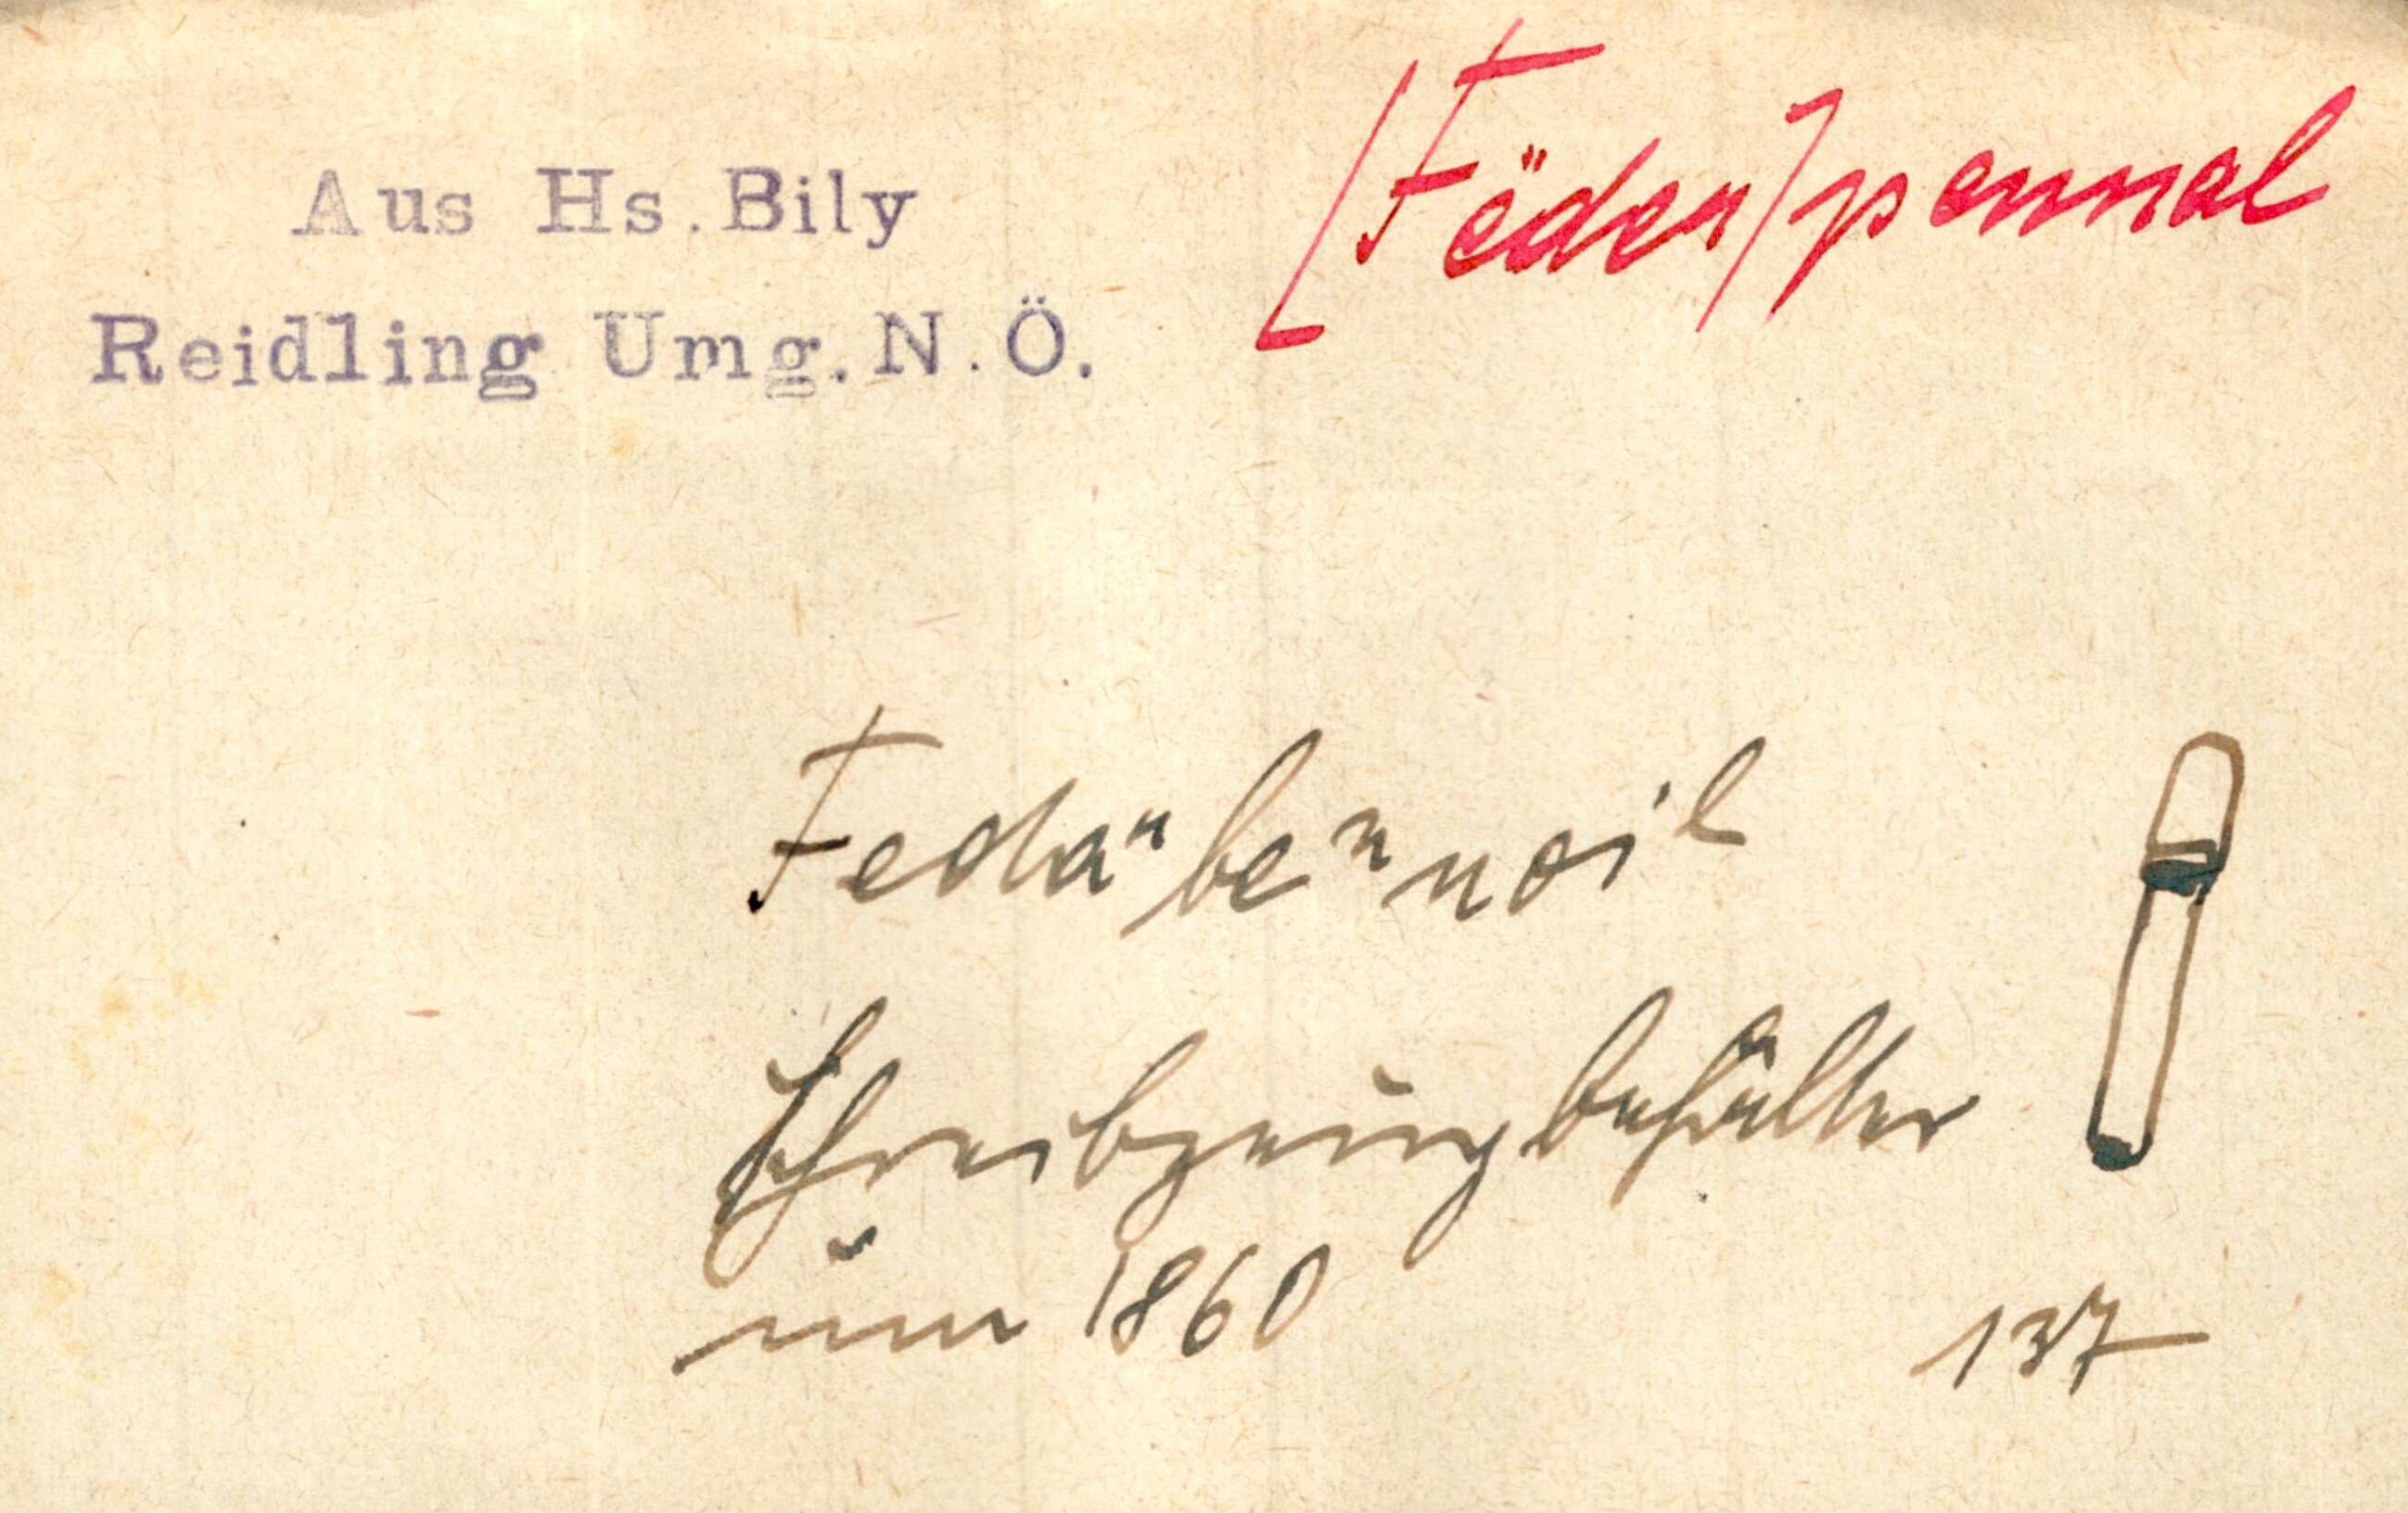 Aus Hs. Bily
Reidling Umg. N.Ö.
[Fëder]pennal
Fedarbennoil
Schreibzeugbehälter
um 1860
137